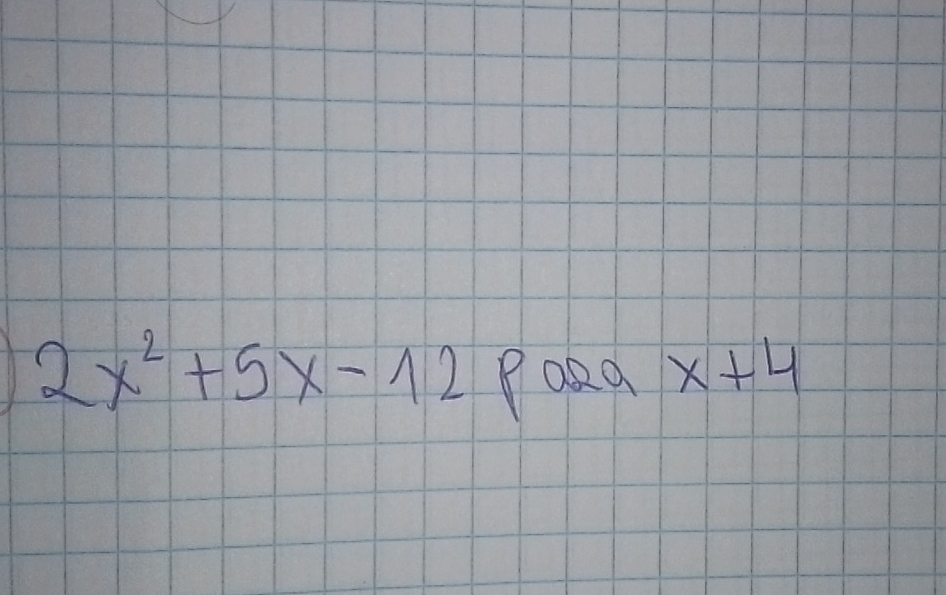 ) 2x² + 5x - 12 para x + 4